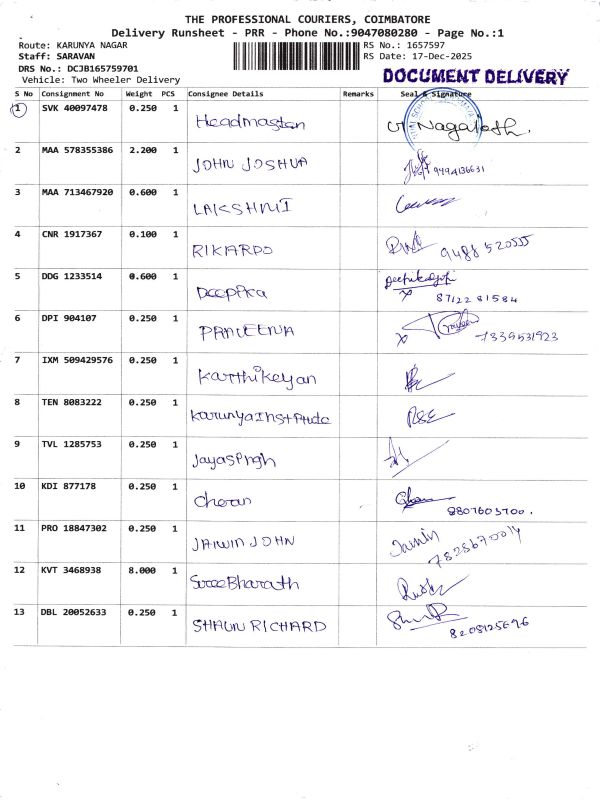 THE PROFESSIONAL COURIERS, COIMBATORE
Delivery Runsheet - PRR - Phone No.:9047080280 - Page No.:1
Route: KARUNYA NAGAR
RS No.: 1657597
Staff: SARAVAN
RS Date: 17-Dec-2025
DRS No.: DCJB165759701
DOCUMENT DELIVERY
Vehicle: Two Wheeler Delivery
S No Consignment No Weight PCS Consignee Details Remarks Seal & Signature
1 SVK 40097478 0.250 1 Headmaster
2 MAA 578355386 2.200 1 JOHN JOSHUA 9494136631
3 MAA 713467920 0.600 1 LAKSHMI
4 CNR 1917367 0.100 1 RIKARDO 9488520555
5 DDG 1233514 0.600 1 Deepika 8712281584
6 DPI 904107 0.250 1 PRAVEENA 7339531923
7 IXM 509429576 0.250 1 Karthikeyan
8 TEN 8083222 0.250 1 Karunya Inst
9 TVL 1285753 0.250 1 Jayasingh
10 KDI 877178 0.250 1 Cheran 8807603700.
11 PRO 18847302 0.250 1 JAIWIN JOHN Jaimin
12 KVT 3468938 8.000 1 Sree Bharath
13 DBL 20052633 0.250 1 SHAUN RICHARD